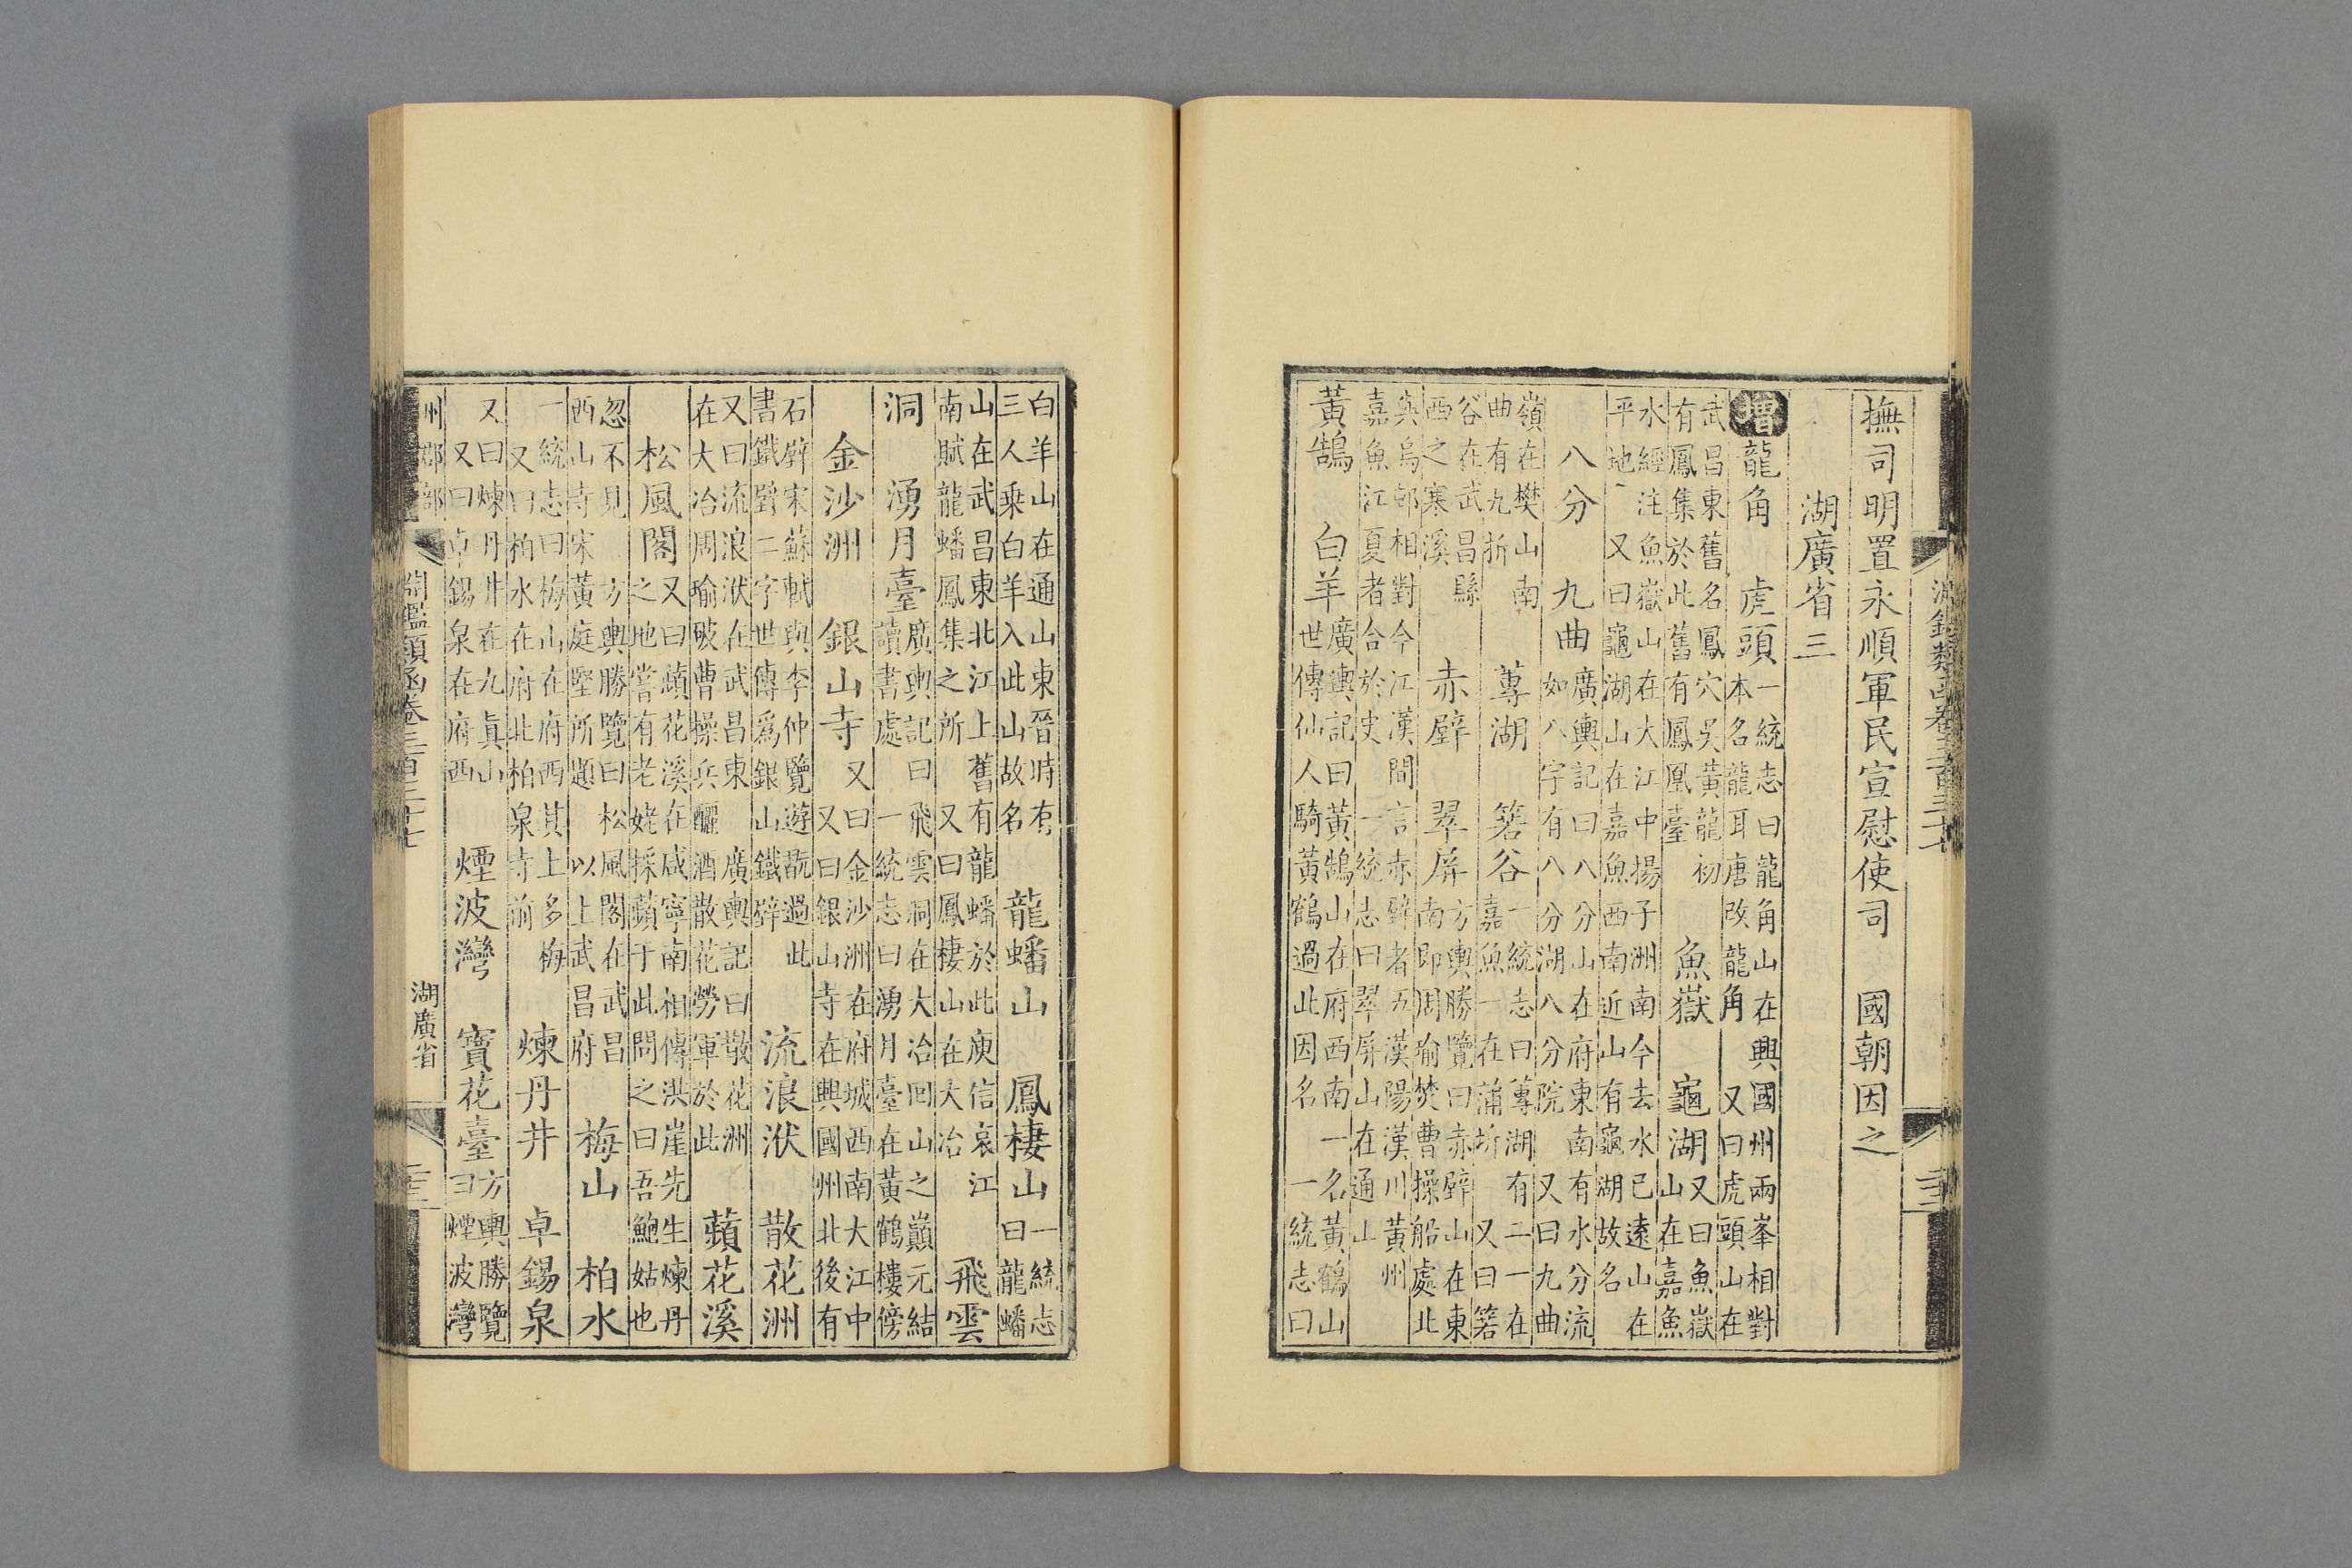 淵鑑類函卷三百三十七
撫司明置永順軍民宣慰使司 國朝因之
湖廣省三
增 龍角 虎頭 一統志曰龍角山在興國州兩峯相對 本名龍耳唐改龍角 又曰虎頭山在
武昌東舊名鳳穴吳黃龍初 有鳳集於此舊有鳳凰臺 魚嶽 龜湖 又曰魚嶽 山在嘉魚
水經注魚嶽山在大江中揚子洲南今去水已遠山在 平地 又曰龜湖山在嘉魚西南近山有龜湖故名
八分 九曲 廣輿記曰八分山在府東南有水分流 如八字有八分湖八分院 又曰九曲
嶺在樊山南 曲有九折 蓴湖 箬谷 一統志曰蓴湖有二一在 嘉魚一在蒲圻 又曰箬
谷在武昌縣 西之寒溪 赤壁 翠屏 方輿勝覽曰赤壁山在東 南即周瑜焚曹操船處北
與烏邨相對今江漢間言赤壁者五漢陽漢川黃州 嘉魚江夏者合於史 一統志曰翠屏山在通山
黃鵠 白羊 廣輿記曰黃鵠山在府西南一名黃鶴山 世傳仙人騎黃鶴過此因名 一統志曰
白羊山在通山東晉時有 三人乘白羊入此山故名 龍蟠山 鳳棲山 一統志 曰龍蟠
山在武昌東北江上舊有龍蟠於此庾信哀江 南賦龍蟠鳳集之所 又曰鳳棲山在大冶 飛雲
洞 湧月臺 廣輿記曰飛雲洞在大冶回山之巔元結 讀書處 一統志曰湧月臺在黃鶴樓傍
金沙洲 銀山寺 又曰金沙洲在府城西南大江中 又曰銀山寺在興國州北後有
石壁宋蘇軾與李仲覽遊翫過此 書鐵壁二字世傳爲銀山鐵壁 流浪洑 散花洲
又曰流浪洑在武昌東 廣輿記曰散花洲 在大冶周瑜破曹操兵釃酒散花勞軍於此 蘋花溪
松風閣 又曰蘋花溪在咸寧南相傳洪崖先生煉丹 之地嘗有老姥採蘋于此問之曰吾鮑姑也
忽不見 方輿勝覽曰松風閣在武昌 西山寺宋黃庭堅所題 以上武昌府 梅山 柏水
一統志曰梅山在府西其上多梅 又曰柏水在府北柏泉寺前 煉丹井 卓錫泉
又曰煉丹井在九眞山 又曰卓錫泉在府西 煙波灣 寶花臺 方輿勝覽 曰煙波灣
州郡部 淵鑑類函卷三百三十七 湖廣省